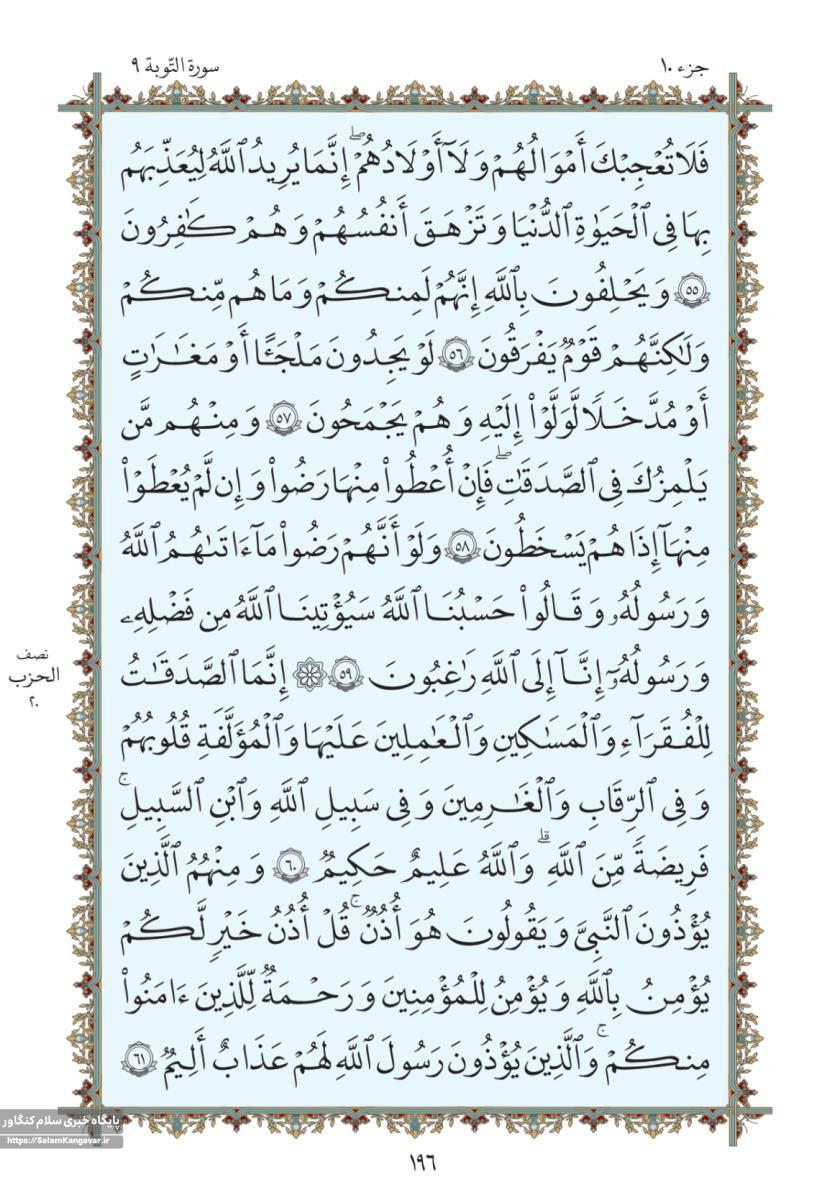 جزء ۱۰
سورة التّوبة ۹
فَلَا تُعْجِبْكَ أَمْوَٰلُهُمْ وَلَآ أَوْلَٰدُهُمْ ۖ إِنَّمَا يُرِيدُ ٱللَّهُ لِيُعَذِّبَهُم
بِهَا فِى ٱلْحَيَوٰةِ ٱلدُّنْيَا وَتَزْهَقَ أَنفُسُهُمْ وَهُمْ كَٰفِرُونَ
۵۵ وَيَحْلِفُونَ بِٱللَّهِ إِنَّهُمْ لَمِنكُمْ وَمَا هُم مِّنكُمْ
وَلَٰكِنَّهُمْ قَوْمٌ يَفْرَقُونَ ۵۶ لَوْ يَجِدُونَ مَلْجَـًٔا أَوْ مَغَٰرَٰتٍ
أَوْ مُدَّخَلًا لَّوَلَّوْا۟ إِلَيْهِ وَهُمْ يَجْمَحُونَ ۵۷ وَمِنْهُم مَّن
يَلْمِزُكَ فِى ٱلصَّدَقَٰتِ ۖ فَإِنْ أُعْطُوا۟ مِنْهَا رَضُوا۟ وَإِن لَّمْ يُعْطَوْا۟
مِنْهَآ إِذَا هُمْ يَسْخَطُونَ ۵۸ وَلَوْ أَنَّهُمْ رَضُوا۟ مَآ ءَاتَىٰهُمُ ٱللَّهُ
وَرَسُولُهُۥ وَقَالُوا۟ حَسْبُنَا ٱللَّهُ سَيُؤْتِينَا ٱللَّهُ مِن فَضْلِهِۦ
وَرَسُولُهُۥٓ إِنَّآ إِلَى ٱللَّهِ رَٰغِبُونَ ۵۹ ۞ إِنَّمَا ٱلصَّدَقَٰتُ
نصف
الحزب
۲۰
لِلْفُقَرَآءِ وَٱلْمَسَٰكِينِ وَٱلْعَٰمِلِينَ عَلَيْهَا وَٱلْمُؤَلَّفَةِ قُلُوبُهُمْ
وَفِى ٱلرِّقَابِ وَٱلْغَٰرِمِينَ وَفِى سَبِيلِ ٱللَّهِ وَٱبْنِ ٱلسَّبِيلِ ۖ
فَرِيضَةً مِّنَ ٱللَّهِ ۗ وَٱللَّهُ عَلِيمٌ حَكِيمٌ ۶۰ وَمِنْهُمُ ٱلَّذِينَ
يُؤْذُونَ ٱلنَّبِىَّ وَيَقُولُونَ هُوَ أُذُنٌ ۚ قُلْ أُذُنُ خَيْرٍ لَّكُمْ
يُؤْمِنُ بِٱللَّهِ وَيُؤْمِنُ لِلْمُؤْمِنِينَ وَرَحْمَةٌ لِّلَّذِينَ ءَامَنُوا۟
مِنكُمْ ۚ وَٱلَّذِينَ يُؤْذُونَ رَسُولَ ٱللَّهِ لَهُمْ عَذَابٌ أَلِيمٌ ۶۱
پایگاه خبری سلام کنگاور
https://SalamKangavar.ir
۱۹۶